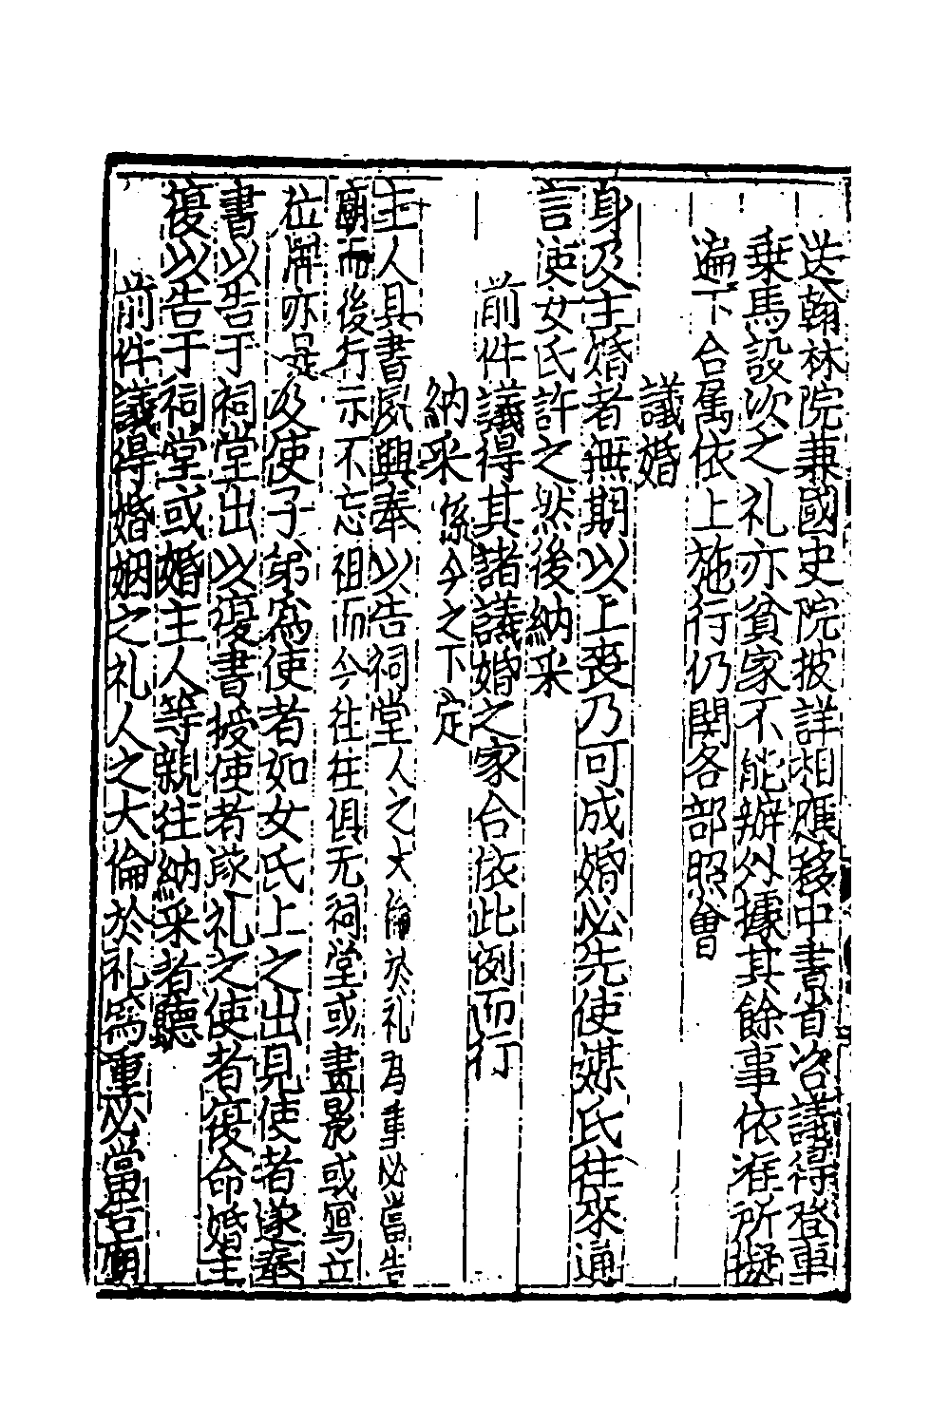 送翰林院兼國史院披詳相應移中書省咨議得登車
乗馬設次之礼亦貧家不能辦外據其餘事依准所擬
遍下合属依上施行仍関各部照會
議婚
身及主婚者無期以上喪乃可成婚必先使媒氏往來通
言使女氏許之然後納采
前件議得其諸議婚之家合依此例而行
納采係今之下定
主人具書夙興奉以告祠堂人之大倫於礼為重必當告
廟而後行示不忘祖而今往往俱无祠堂或畫影或写立
位牌亦是及使子弟為使者如女氏上之出見使者遂奉
書以告于祠堂出以復書授使者遂礼之使者復命婚主
復以告于祠堂或婚主人等親往納采者聽
前件議得婚姻之礼人之大倫於礼為重必當告廟